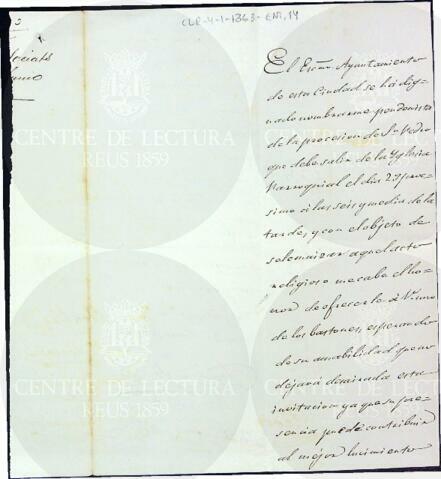 CLR-4-1-1863-ENT, 14
El Exmo. Ayuntamiento
de esta Ciudad se ha dig-
nado nombrarme pendonista
de la procesion de Sn. Pedro
que debe salir de la Yglesia
Parroquial el dia 29 proc-
simo á las seis y media de la
tarde, y con el objeto de
solemnizar aquel acto
religioso me cabe el ho-
nor de ofrecerle á V. uno
de los bastones, esperando
de su amabilidad que no
dejará desairada esta
invitacion ya que su pre-
sencia puede contribuir
al mejor lucimiento
CENTRE DE LECTURA
REUS 1859
CENTRE DE LECTURA
REUS 1859